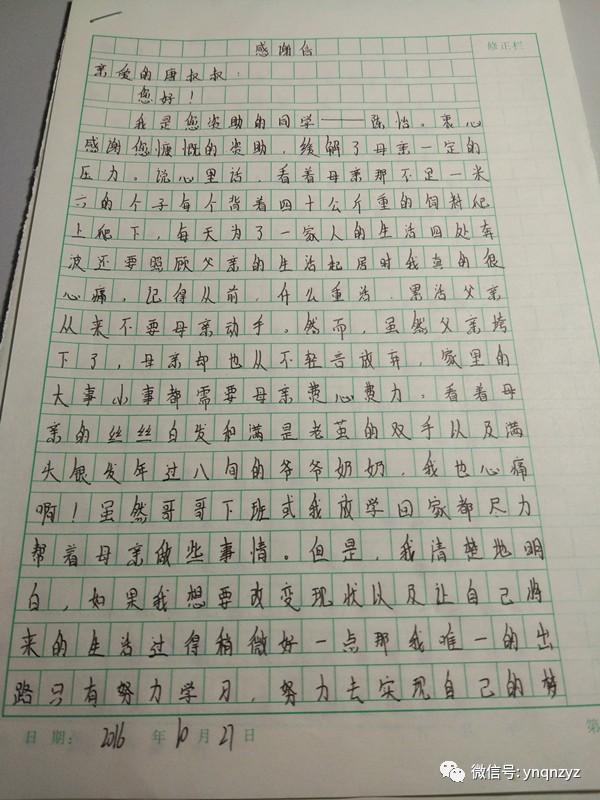 感谢信
修正栏
亲爱的唐叔叔：
您好！
我是您资助的同学——陈怡。衷心
感谢您慷慨的资助，缓解了母亲一定的
压力。说心里话，看着母亲那不足一米
六的个子每个背着四十公斤重的饲料爬
上爬下，每天为了一家人的生活四处奔
波还要照顾父亲的生活起居时我真的很
心痛，记得从前，什么重活，累活父亲
从来不要母亲动手。然而，虽然父亲垮
下了，母亲却也从不轻言放弃，家里的
大事小事都需要母亲费心费力。看着母
亲的丝丝白发和满是老茧的双手以及满
头银发年过八旬的爷爷奶奶，我也心痛
啊！虽然哥哥下班或我放学回家都尽力
帮着母亲做些事情。但是，我清楚地明
白，如果我想要改变现状以及让自己将
来的生活过得稍微好一点那我唯一的出
路只有努力学习，努力去实现自己的梦
日期：2016年10月27日
第
微信号: ynqnzyz